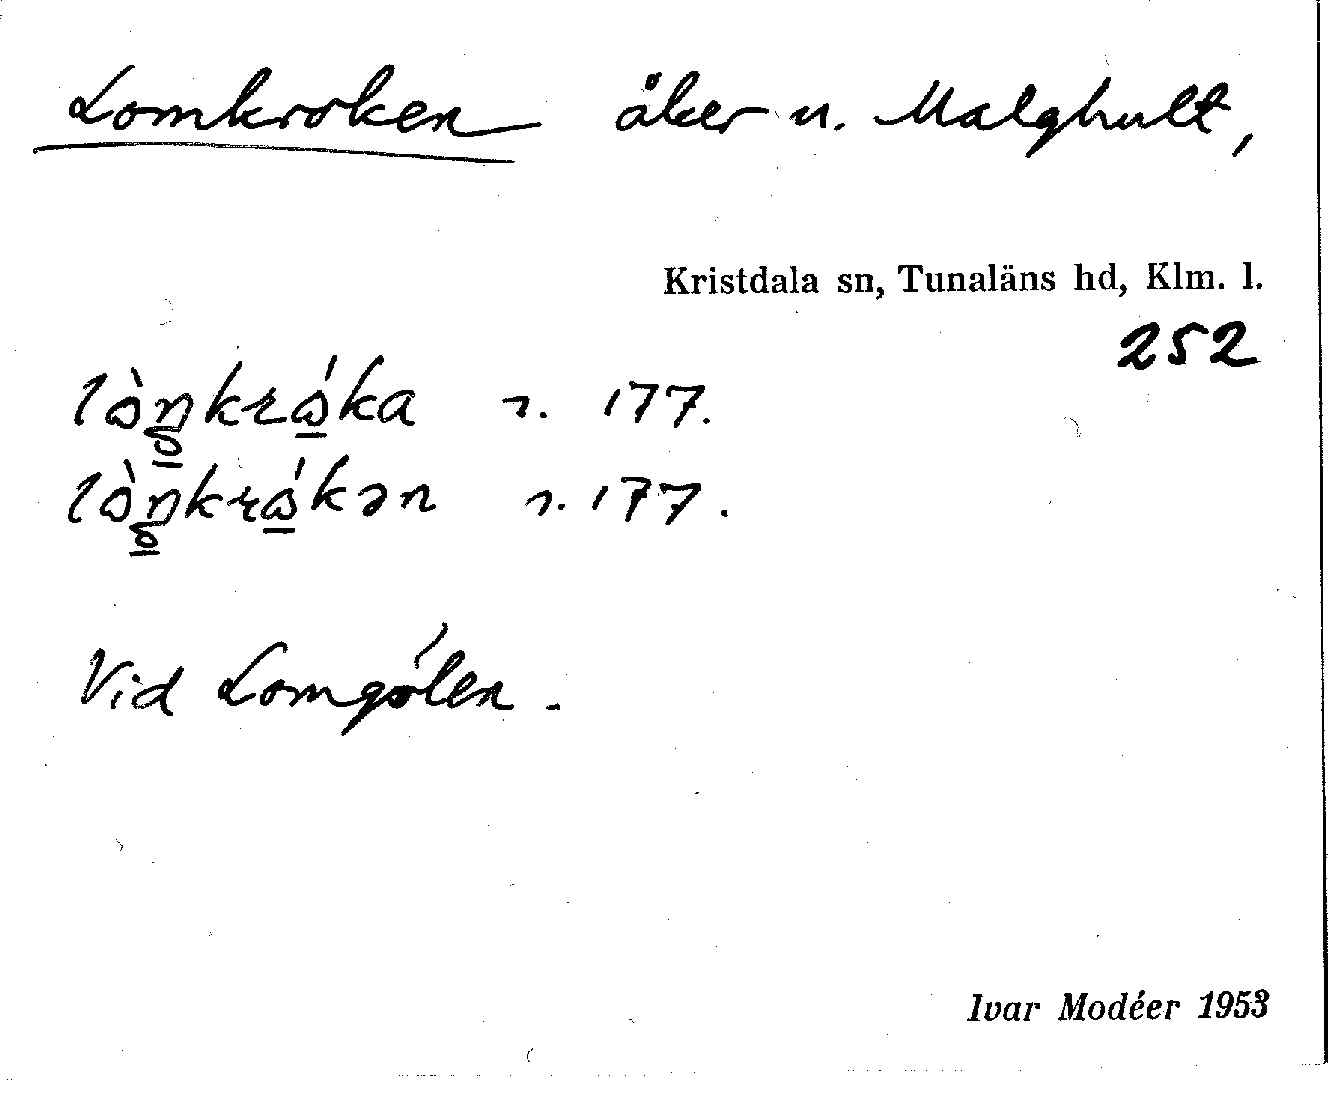 Lomkroken åker u. Malghult,
Kristdala sn, Tunaläns hd, Klm. l.
252
lòŋkróka ɿ. 177.
lòŋkrókən ɿ. 177.
Vid Lomgölen.
Ivar Modéer 1953